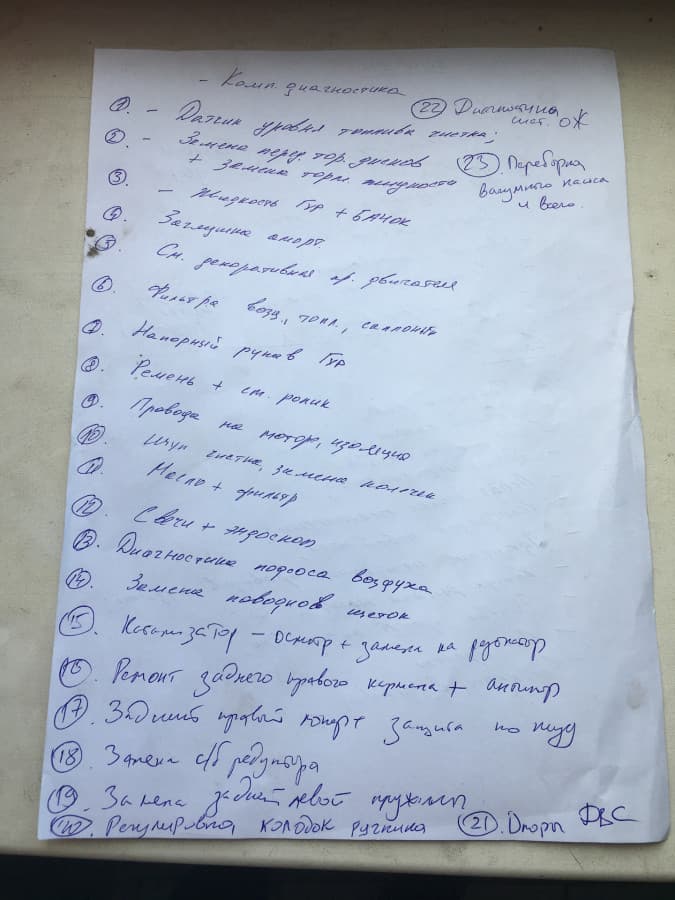 - Комп. диагностика
① - Датчик уровня топлива чистка;
② - Замена перед. тор. дисков
+ замена торм. жидкости
③ - Жидкость Гур + БАЧОК
④ Заглушка аморт.
⑤ См. декоративная кр. двигателя
⑥ Фильтра возд., топл., салонный
⑦ Напорный рукав Гур
⑧ Ремень + ст. ролик
⑨ Провода на мотор, изоляция
⑩ Щуп чистка, замена колечек
11 Масло + фильтр
⑫ Свечи + эндоскоп
⑬ Диагностика подсоса воздуха
⑭ Замена поводков щеток
⑮. Катализатор - осмотр + замена на
⑯. Ремонт заднего правого кармана +
⑰. Задний правый + защита по
⑱. Замена с/б редуктора
⑲. Замена задней левой пружины
⑳. Регулировка колодок ручника
㉑. Опоры ДВС
㉒ Диагностика
сист. ОЖ
㉓. Переборка
вакуумного насоса
и всего.